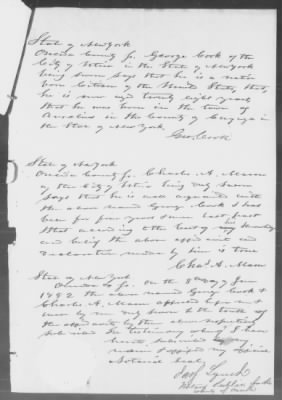 State of New York
Oneida County ss. George Cook of the
City of Utica in the State of New York
being sworn says that he is a native
born Citizen of the United States, that
he is now aged twenty eight years
that he was born in the town of
Aurelius in the County of Cayuga in
the State of New York
Geo. Cook
State of New York
Oneida County ss. Charles A. Mann
of the City of Utica being duly sworn
says that he is well acquainted with
the above named George Cook & has
been for four years since last past
that according to the best of my knowledge
and belief the above affidavit and
declaration made by him is true
Chas. A. Mann
State of New York
ss. On the 8th day of June
the above named George Cook &
Charles A. Mann appeared before me &
were by me duly sworn to the truth of
the affidavits by them above respectively
subscribed In testimony whereof I have
hereunto subscribed my
name & affixed my official
Notarial Seal
Lynch
Notary Public for the